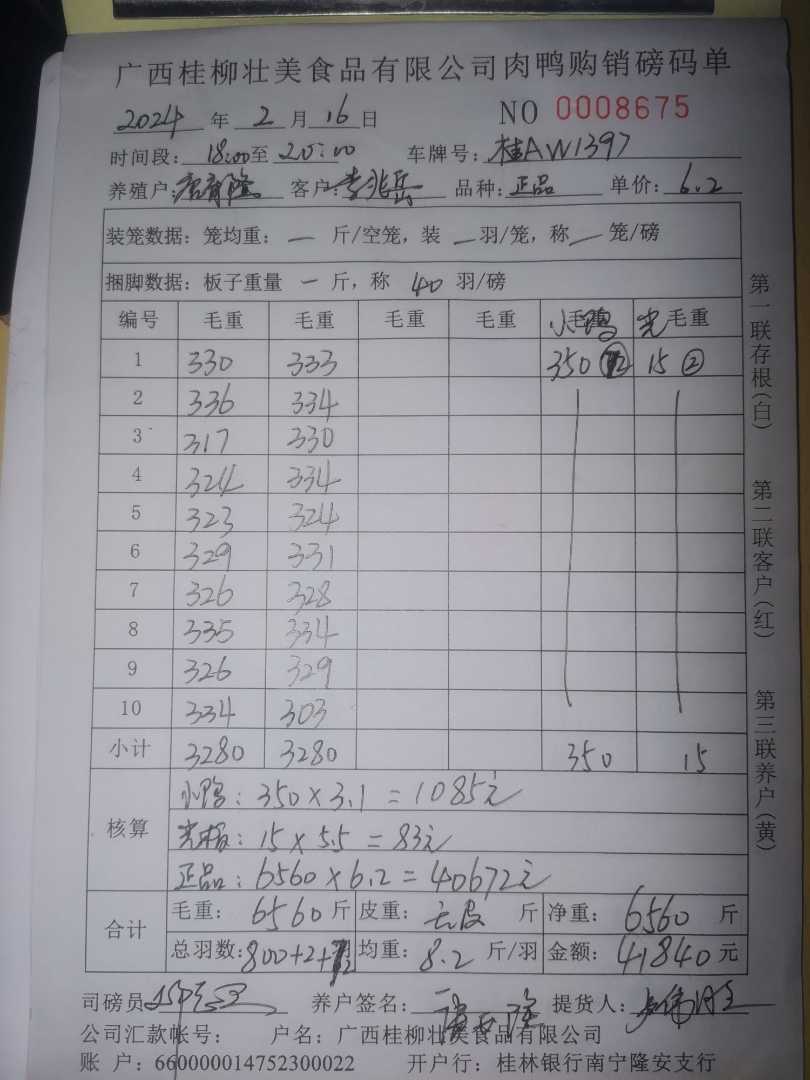 广西桂柳壮美食品有限公司肉鸭购销磅码单
2024 年 2 月 16 日 NO 0008675
时间段: 18:00 至 20:00 车牌号: 桂AW1397
养殖户: 客户: 李兆岳 品种: 正品 单价: 6.2
装笼数据: 笼均重: 一 斤/空笼, 装 一 羽/笼, 称 一 笼/磅
捆脚数据: 板子重量 一 斤, 称 40 羽/磅
编号 毛重 毛重 毛重 毛重 小毛鸭重 光毛重
1 330 333 350 15 ②
2 336 334
3 317 330
4 324 334
5 323 324
6 329 331
7 326 328
8 335 334
9 326 329
10 334 303
小计 3280 3280 350 15
核算
小鸭: 350×3.1=1085元
光板: 15×5.5=83元
正品: 6560×6.2=40672元
合计
毛重: 6560 斤 皮重: 去皮 斤 净重: 6560 斤
总羽数: 800+2+ 均重: 8.2 斤/羽 金额: 41840 元
司磅员 养户签名: 提货人:
公司汇款帐号: 户名: 广西桂柳壮美食品有限公司
账 户: 660000014752300022 开户行: 桂林银行南宁隆安支行
第一联存根(白) 第二联客户(红) 第三联养户(黄)